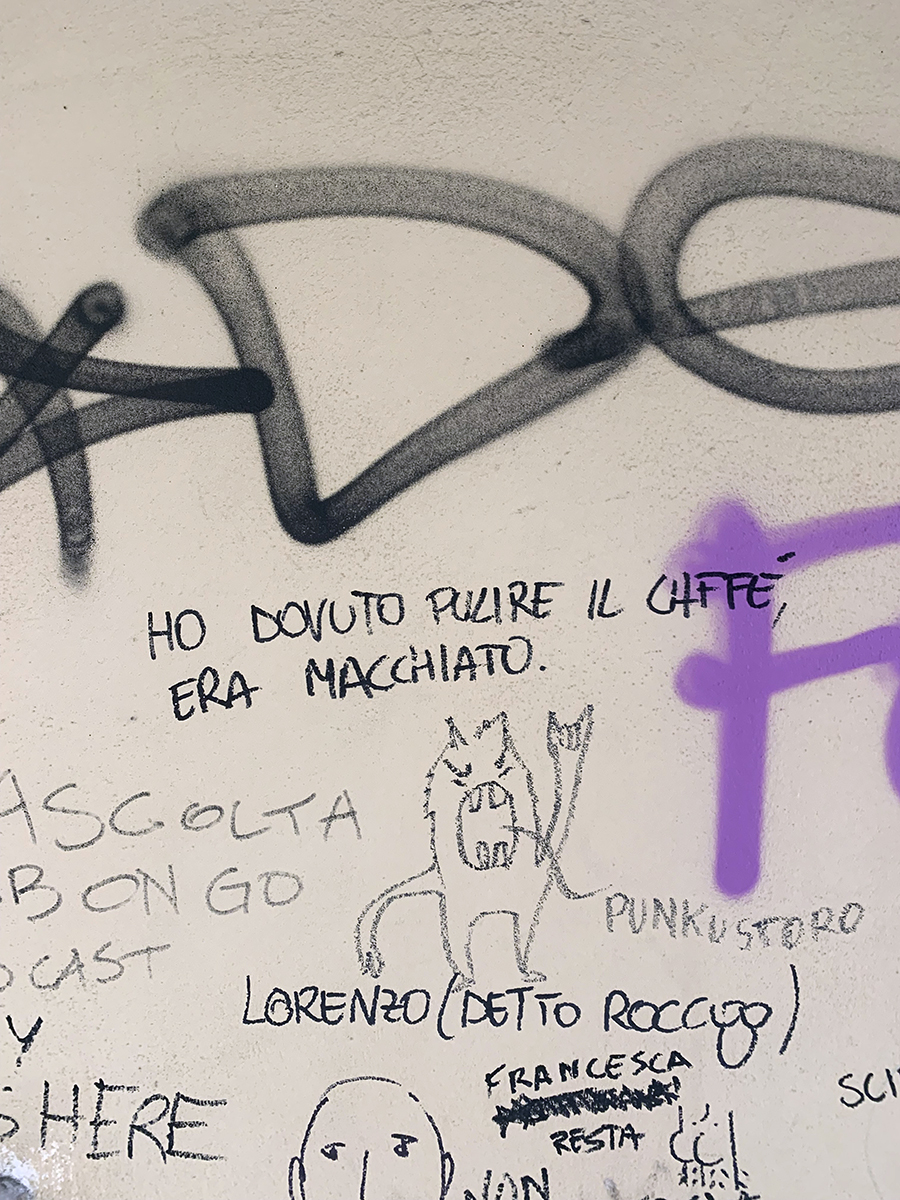 HO DOVUTO PULIRE IL CAFFE',
ERA MACCHIATO.
ASCOLTA
BONGO
CAST
PUNKUSTORO
LORENZO (DETTO ROCCO)
Y
HERE
FRANCESCA
RESTA
NON
SCI